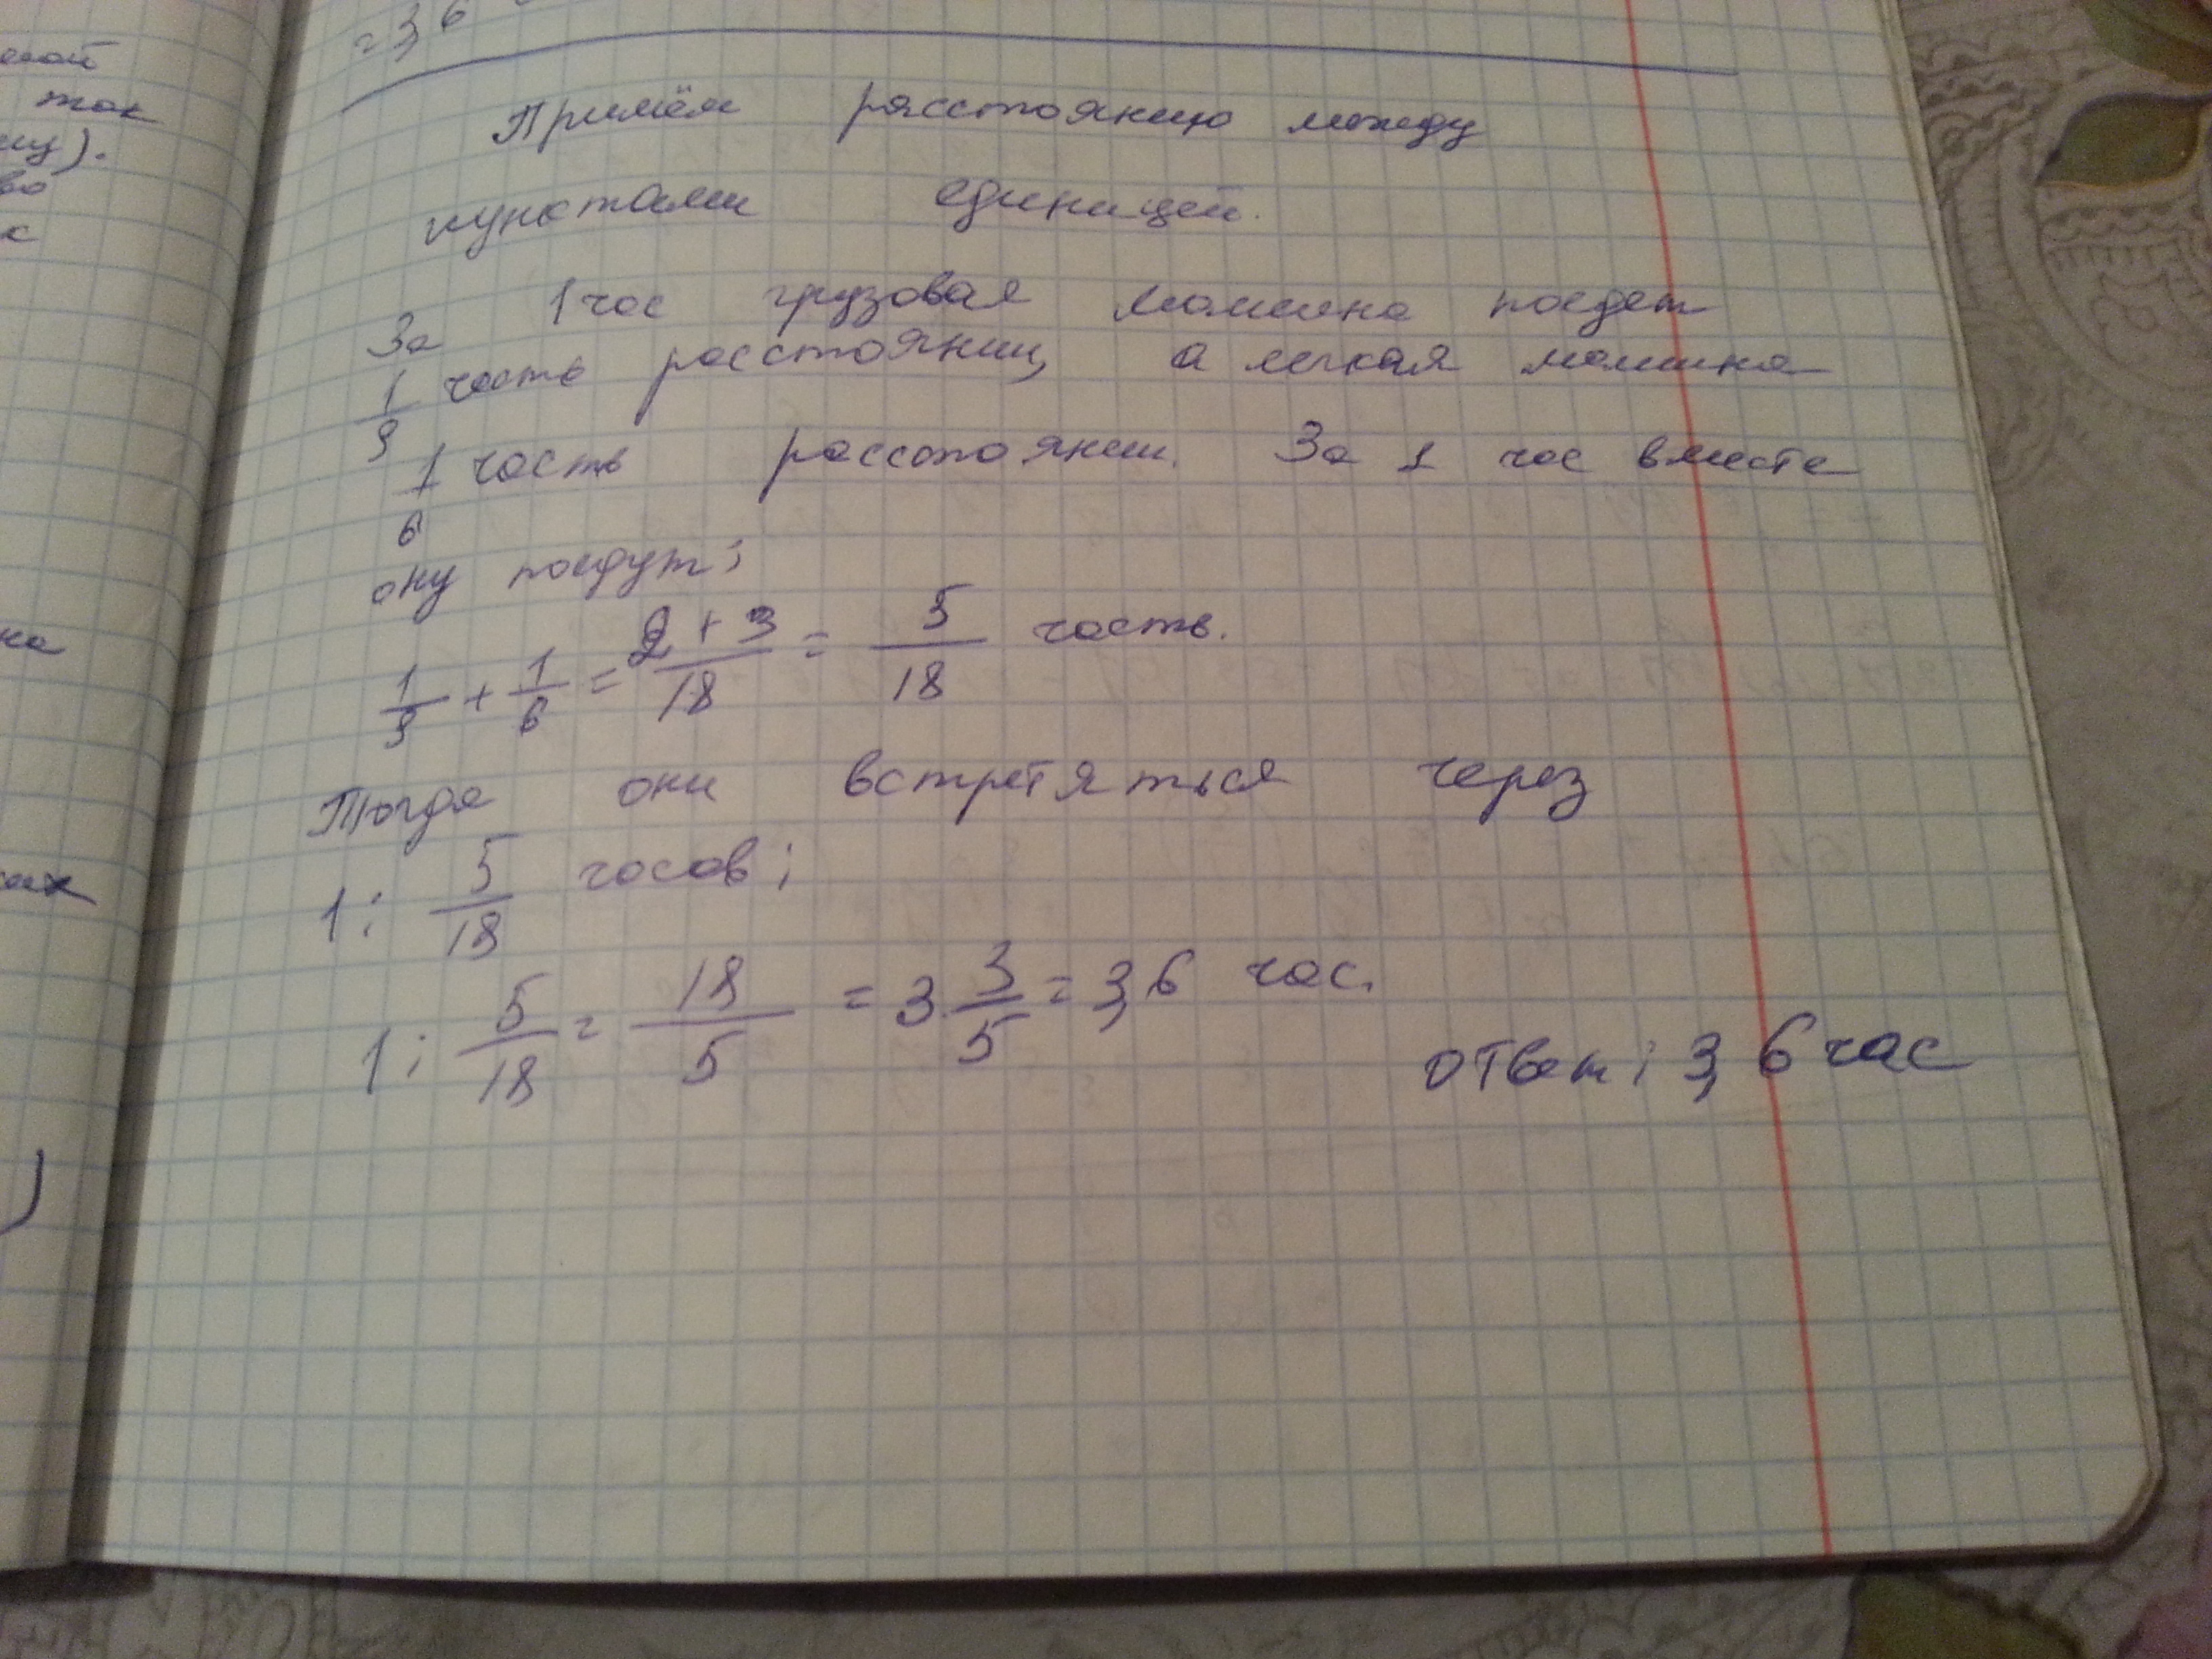 = 3,6
Примем расстоянию между
пунктами единицей.
За 1 час грузовая машина поедет
1/9 часть расстоянии, а легкая машина
1/6 часть расстоянии. За 1 час вместе
ону поедут:
1/9 + 1/6 = 2+3/18 = 5/18 часть.
Тогда они встретяться через
1 : 5/18 часов;
1 : 5/18 = 18/5 = 3 3/5 = 3,6 час.
ответ: 3,6 час
так
на